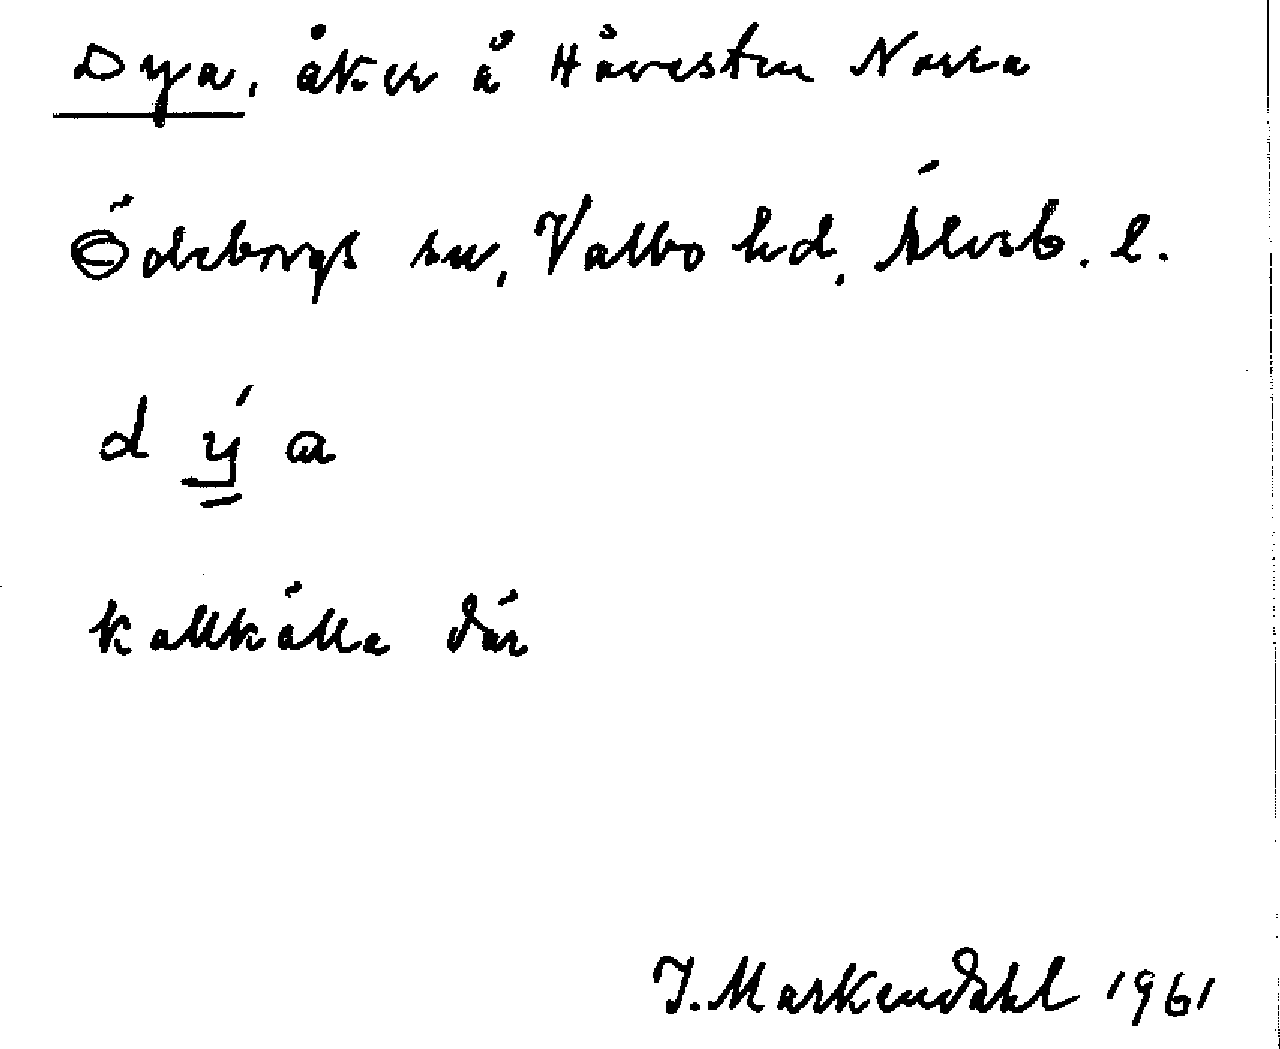 Dya, åker å Håvesten Norra
Ödeborgs sn, Valbo hd, Älvsb. l.
d ý a
kallkälla där
J. Markendahl 1961